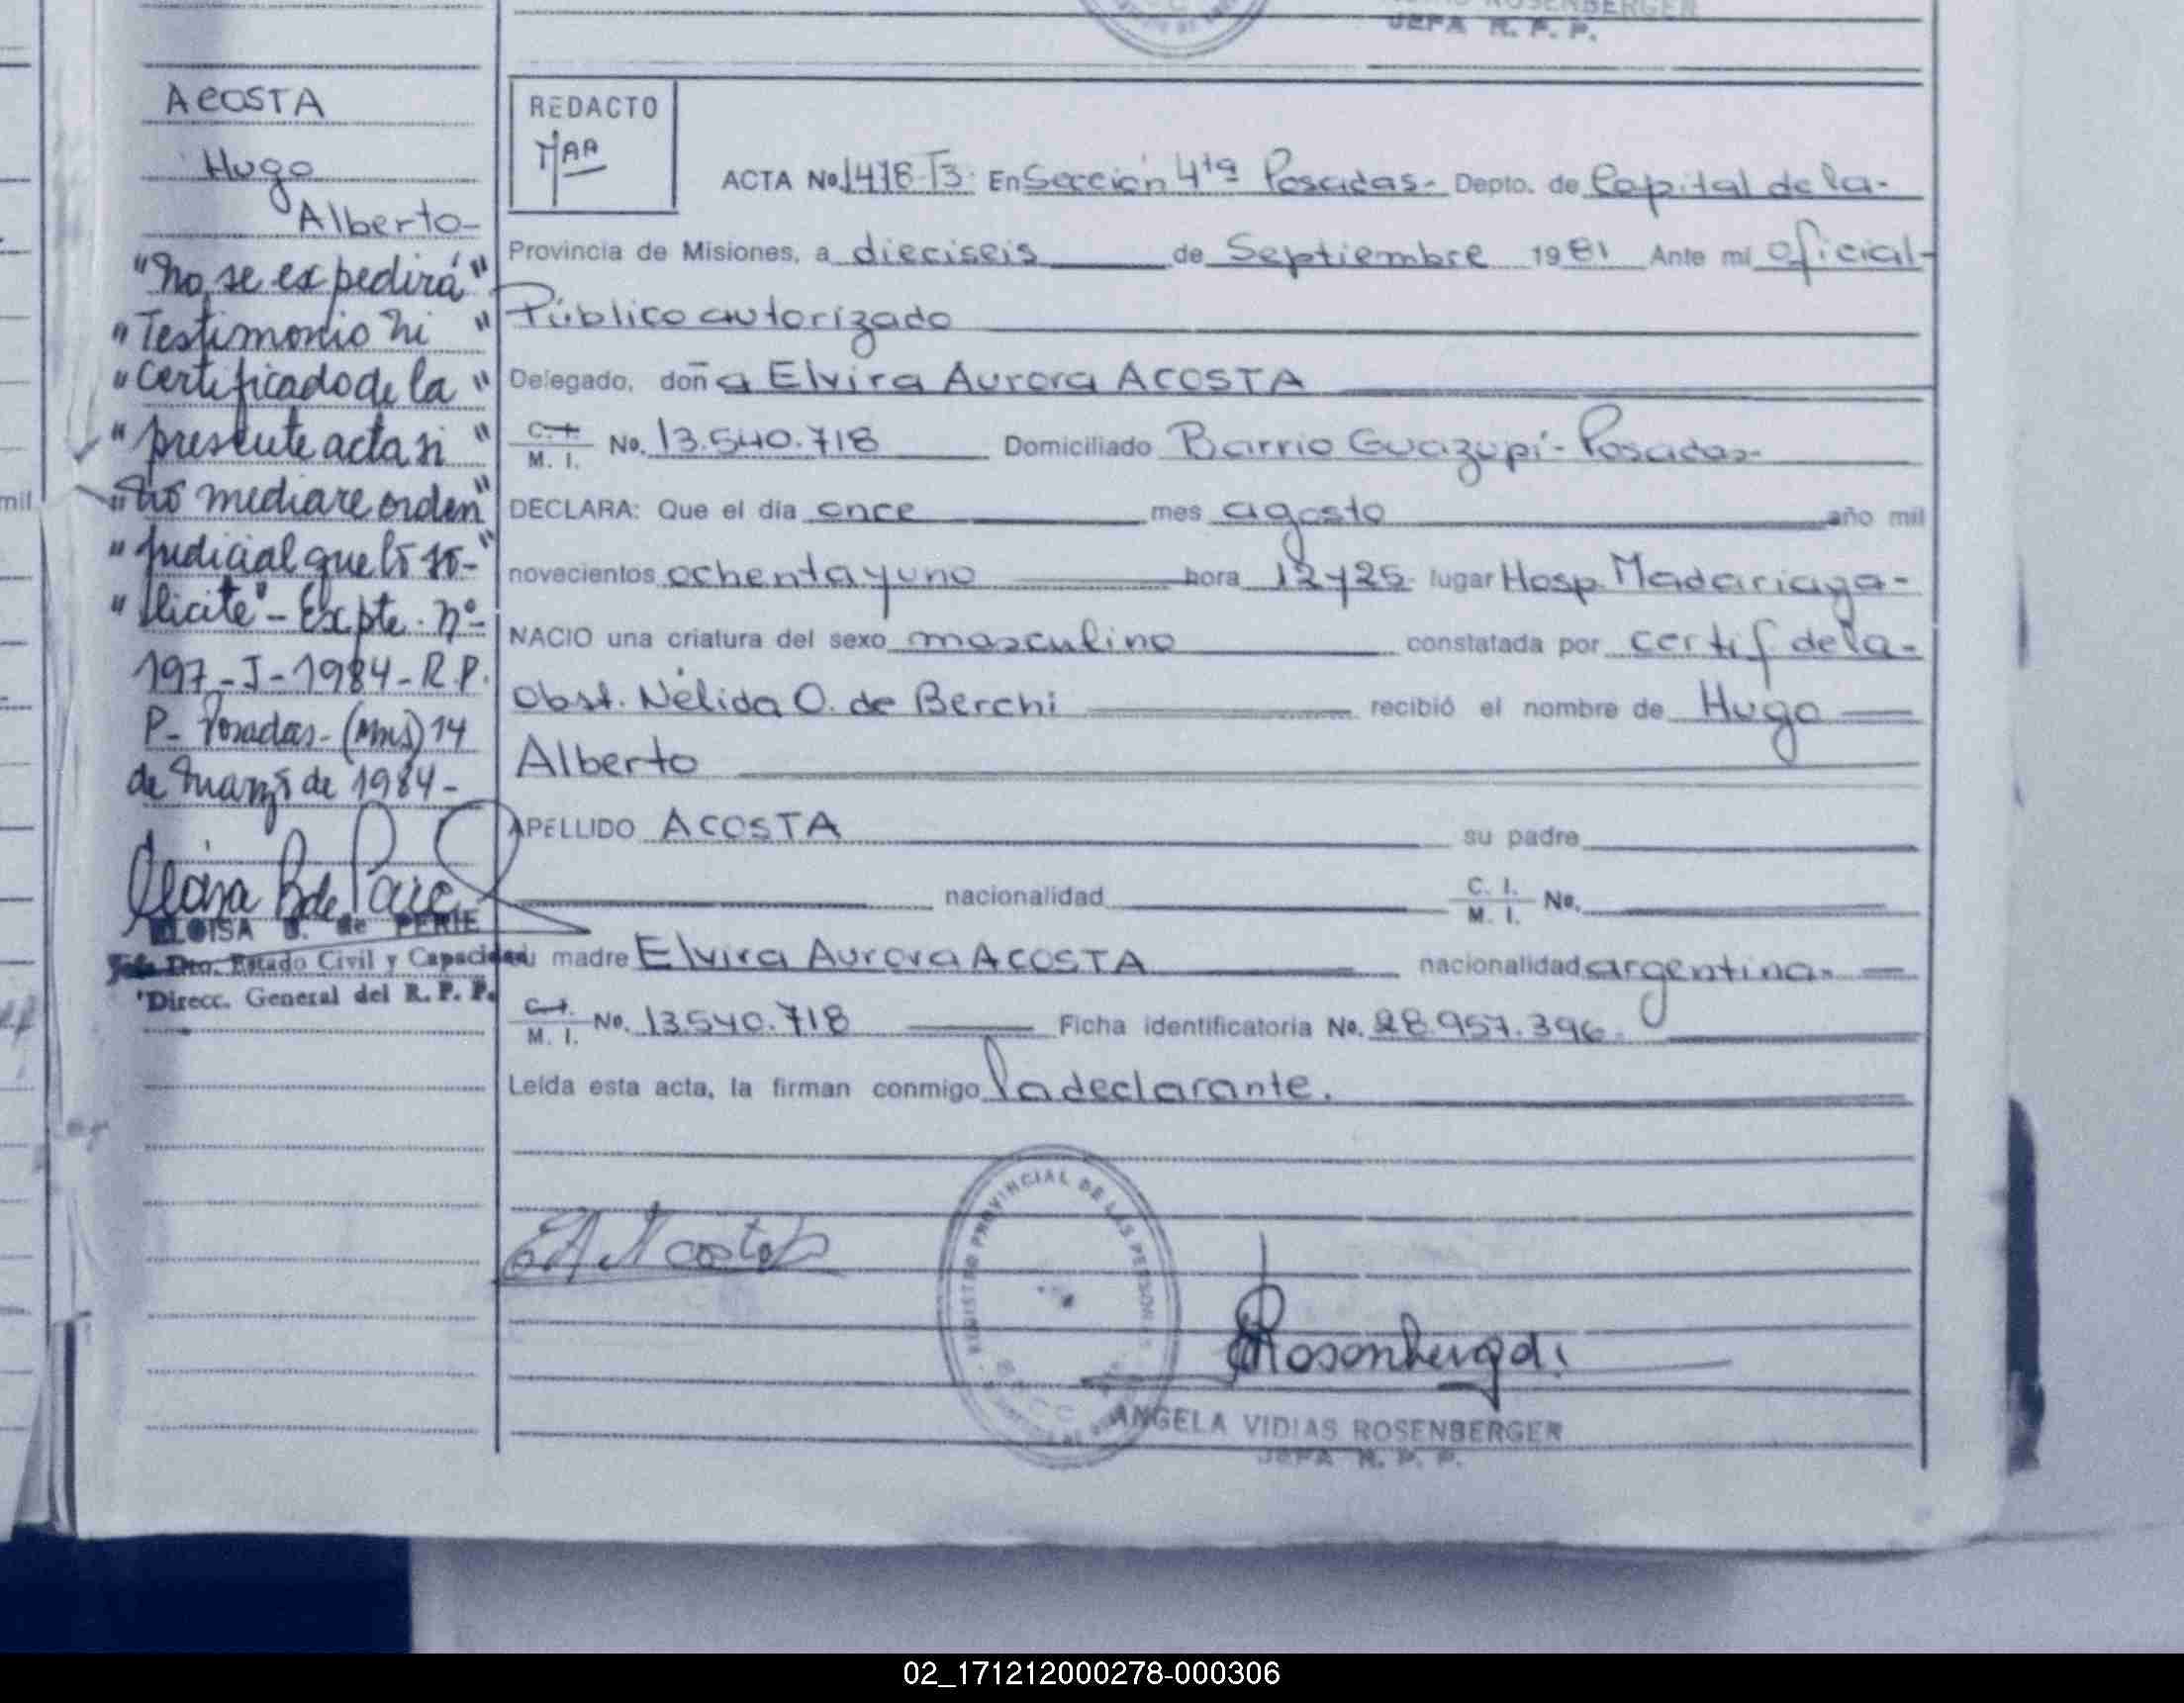 JEFA R. P. P.
ACOSTA
Hugo
Alberto-
"No se expedirá"
"Testimonio ni "
"Certificado de la "
"presente acta si "
"no mediare orden"
"judicial que lo so-"
"licite"- Expte. nº-
197-J-1984-R.P.
P- Posadas-(Mns) 14
de Marzo de 1984-
ELOISA B. de PERIE
Jefe Dto. Estado Civil y Capacidad
Direcc. General del R. P. P.
REDACTO
MAA
ACTA No. 1418-T3- En Sección 4ta Posadas- Depto. de Capital de la-
Provincia de Misiones, a dieciseis de Septiembre 1981 Ante mi oficial-
Público autorizado
Delegado, doña Elvira Aurora ACOSTA
C. I. M. I. No. 13.540.718 Domiciliado Barrio Guazupí- Posadas-
DECLARA: Que el día once mes agosto año mil
novecientos ochenta y uno hora 12 y 25- lugar Hosp. Madariaga-
NACIO una criatura del sexo masculino constatada por certif de la-
Obst. Nélida O. de Berchi recibió el nombre de Hugo
Alberto
APELLIDO ACOSTA su padre
nacionalidad C. I. M. I. No.
su madre Elvira Aurora ACOSTA nacionalidad argentina-
C. I. M. I. No. 13.540.718 Ficha identificatoria No. 28.957.396-
Leída esta acta, la firman conmigo la declarante.
REGISTRO PROVINCIAL DE LAS PERSONAS
ANGELA VIDIAS ROSENBERGER
JEFA R. P. P.
mil
02_171212000278-000306